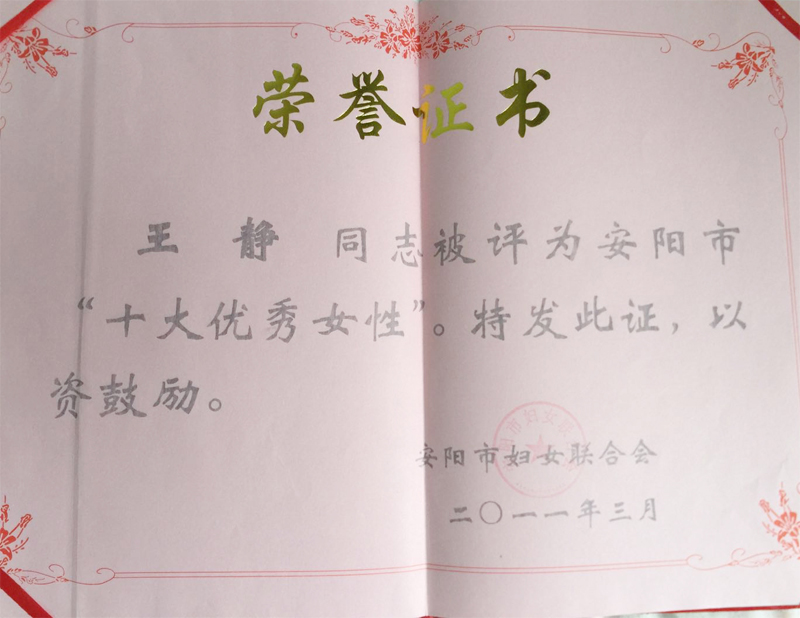 荣誉证书
王 静 同志被评为安阳市
“十大优秀女性”。特发此证，以
资鼓励。
安阳市妇女联合会
二〇一一年三月